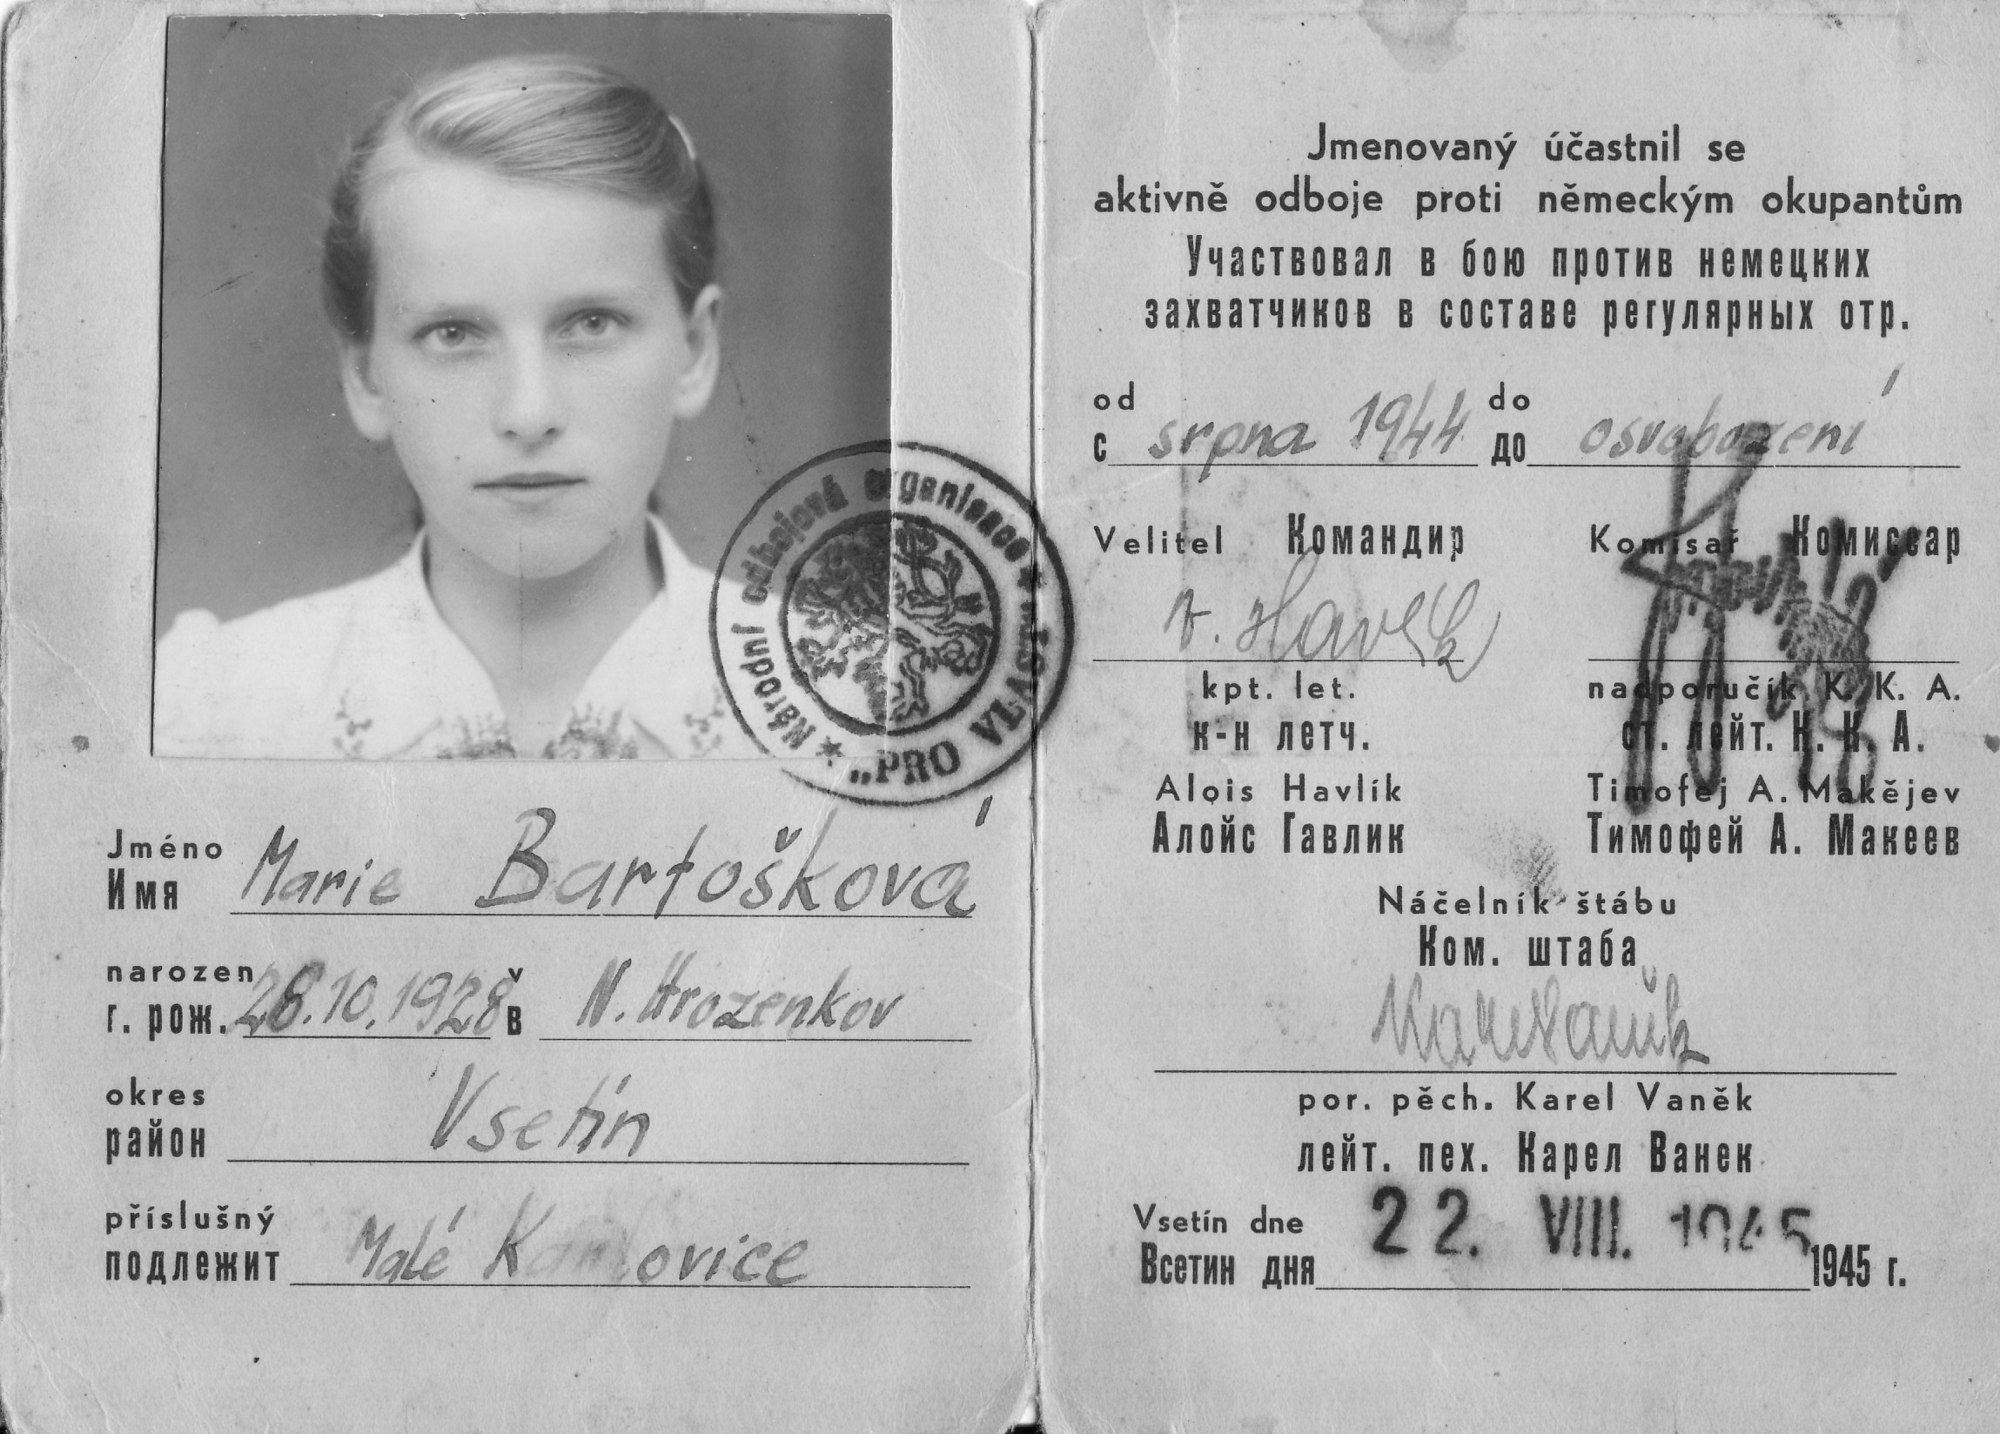 Národní odbojová organisace
„PRO VLAST
Jméno
Имя Marie Bartošková
narozen
г. рож. 28.10.1928 v
в N. Hrozenkov
okres
район Vsetín
příslušný
подлежит Malé Karlovice
Jmenovaný účastnil se
aktivně odboje proti německým okupantům
Участвовал в бою против немецких
захватчиков в составе регулярных отр.
od do
с srpna 1944 до osvobození
Velitel Командир Komisař Комиссар
A. Havlík
kpt. let. nadporučík K. K. A.
к-н летч. ст. лейт. К. К. А.
Alois Havlík Timofej A. Makějev
Алойс Гавлик Тимофей А. Макеев
Náčelník štábu
Ком. штаба
por. pěch. Karel Vaněk
лейт. пех. Карел Ванек
Vsetín dne
Всетин дня 22. VIII. 1945 1945 г.